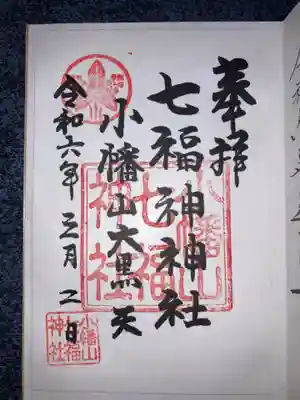 奉拝
七福神神社
小幡山大黒天
令和六年三月二日
小幡山
七福
神社
小幡山
七福
神社